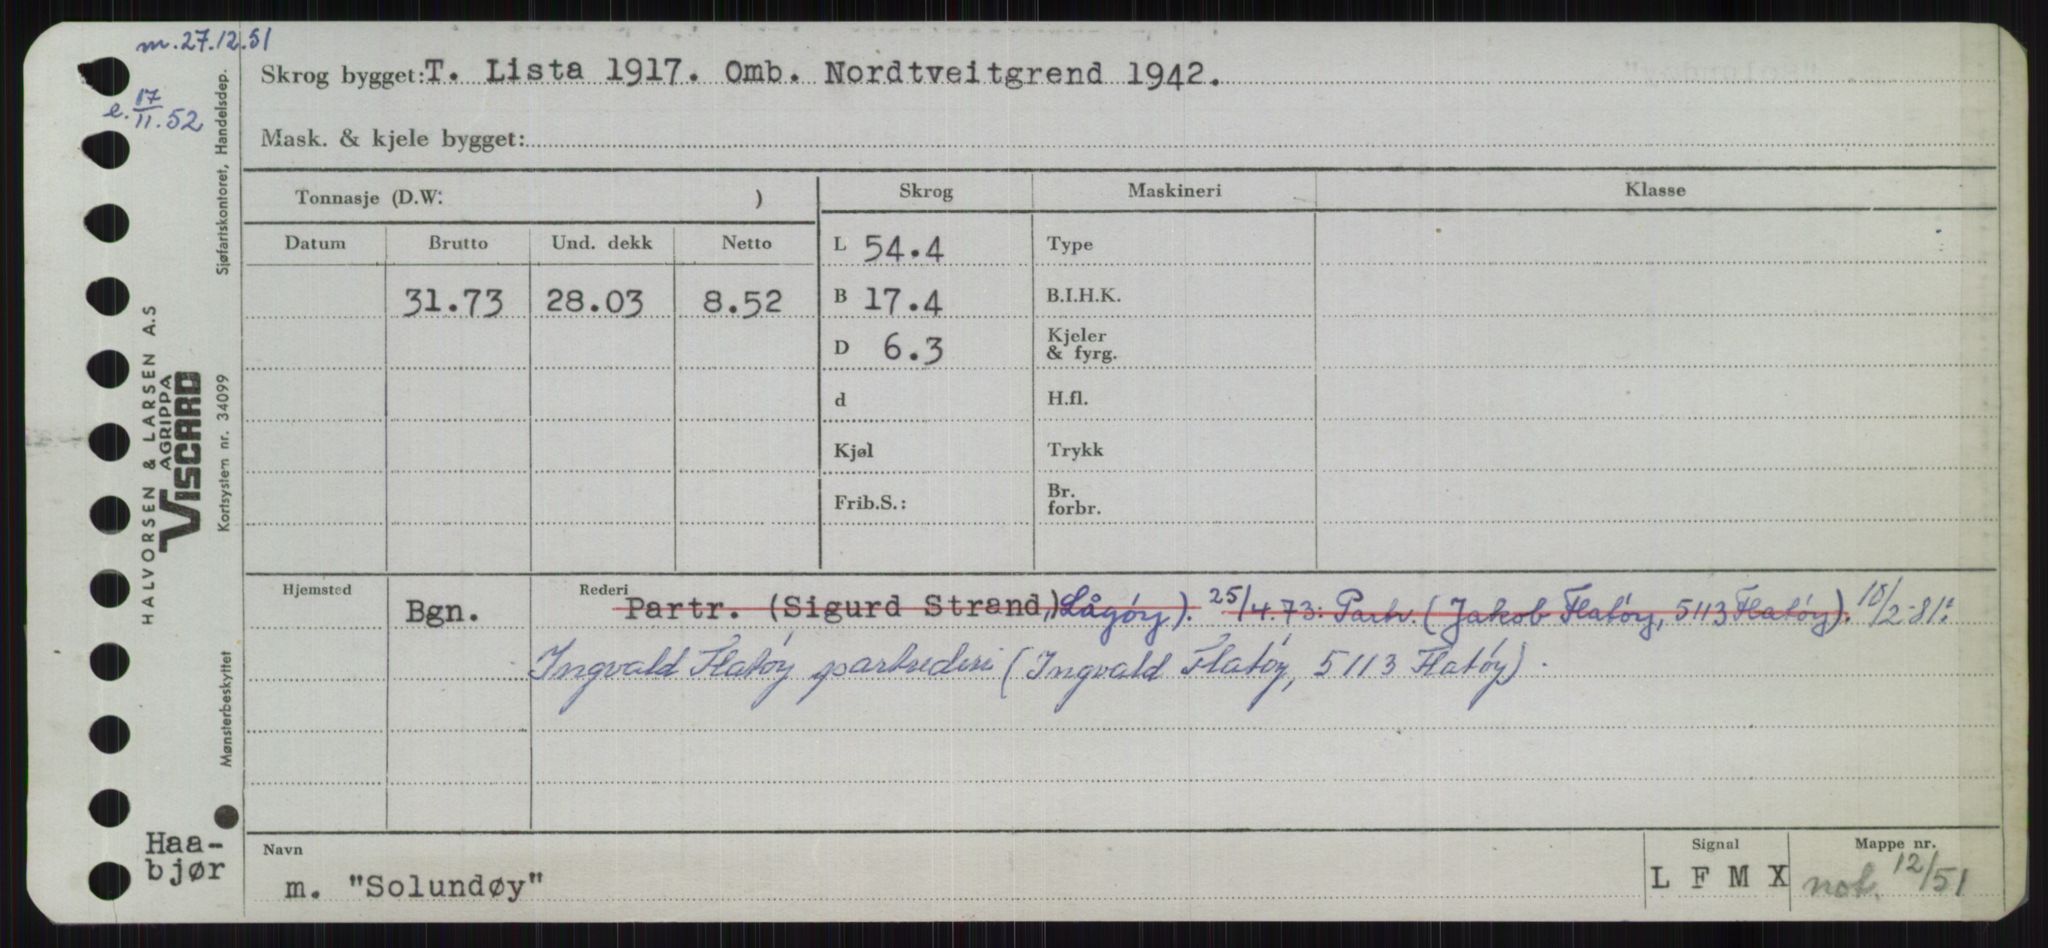 m. 27.12.51
e. 17/11.52
Skrog bygget: T. Lista 1917. Omb. Nordtveitgrend 1942.
Mask. & kjele bygget:
Tonnasje (D.W: )
Skrog
Maskineri
Klasse
Datum
Brutto
Und. dekk
Netto
31.73
28.03
8.52
L 54.4
B 17.4
D 6.3
d
Kjøl
Frib.S.:
Type
B.I.H.K.
Kjeler
& fyrg.
H.fl.
Trykk
Br.
forbr.
Hjemsted
Bgn.
Rederi
Partr. (Sigurd Strand,) Lågøy). 25/4.73: Partr. (Jakob Flatøy, 5113 Flatøy). 10/2-81:
Ingvald Flatøy partrederi (Ingvald Flatøy, 5113 Flatøy).
Haa-
bjør
Navn
m. "Solundøy"
Signal
L F M X
Mappe nr.
not. 12/51
HALVORSEN & LARSEN A.S
AGRIPPA
VISCARD
Sjøfartskontoret, Handelsdep.
Kortsystem nr. 34099
Mønsterbeskyttet